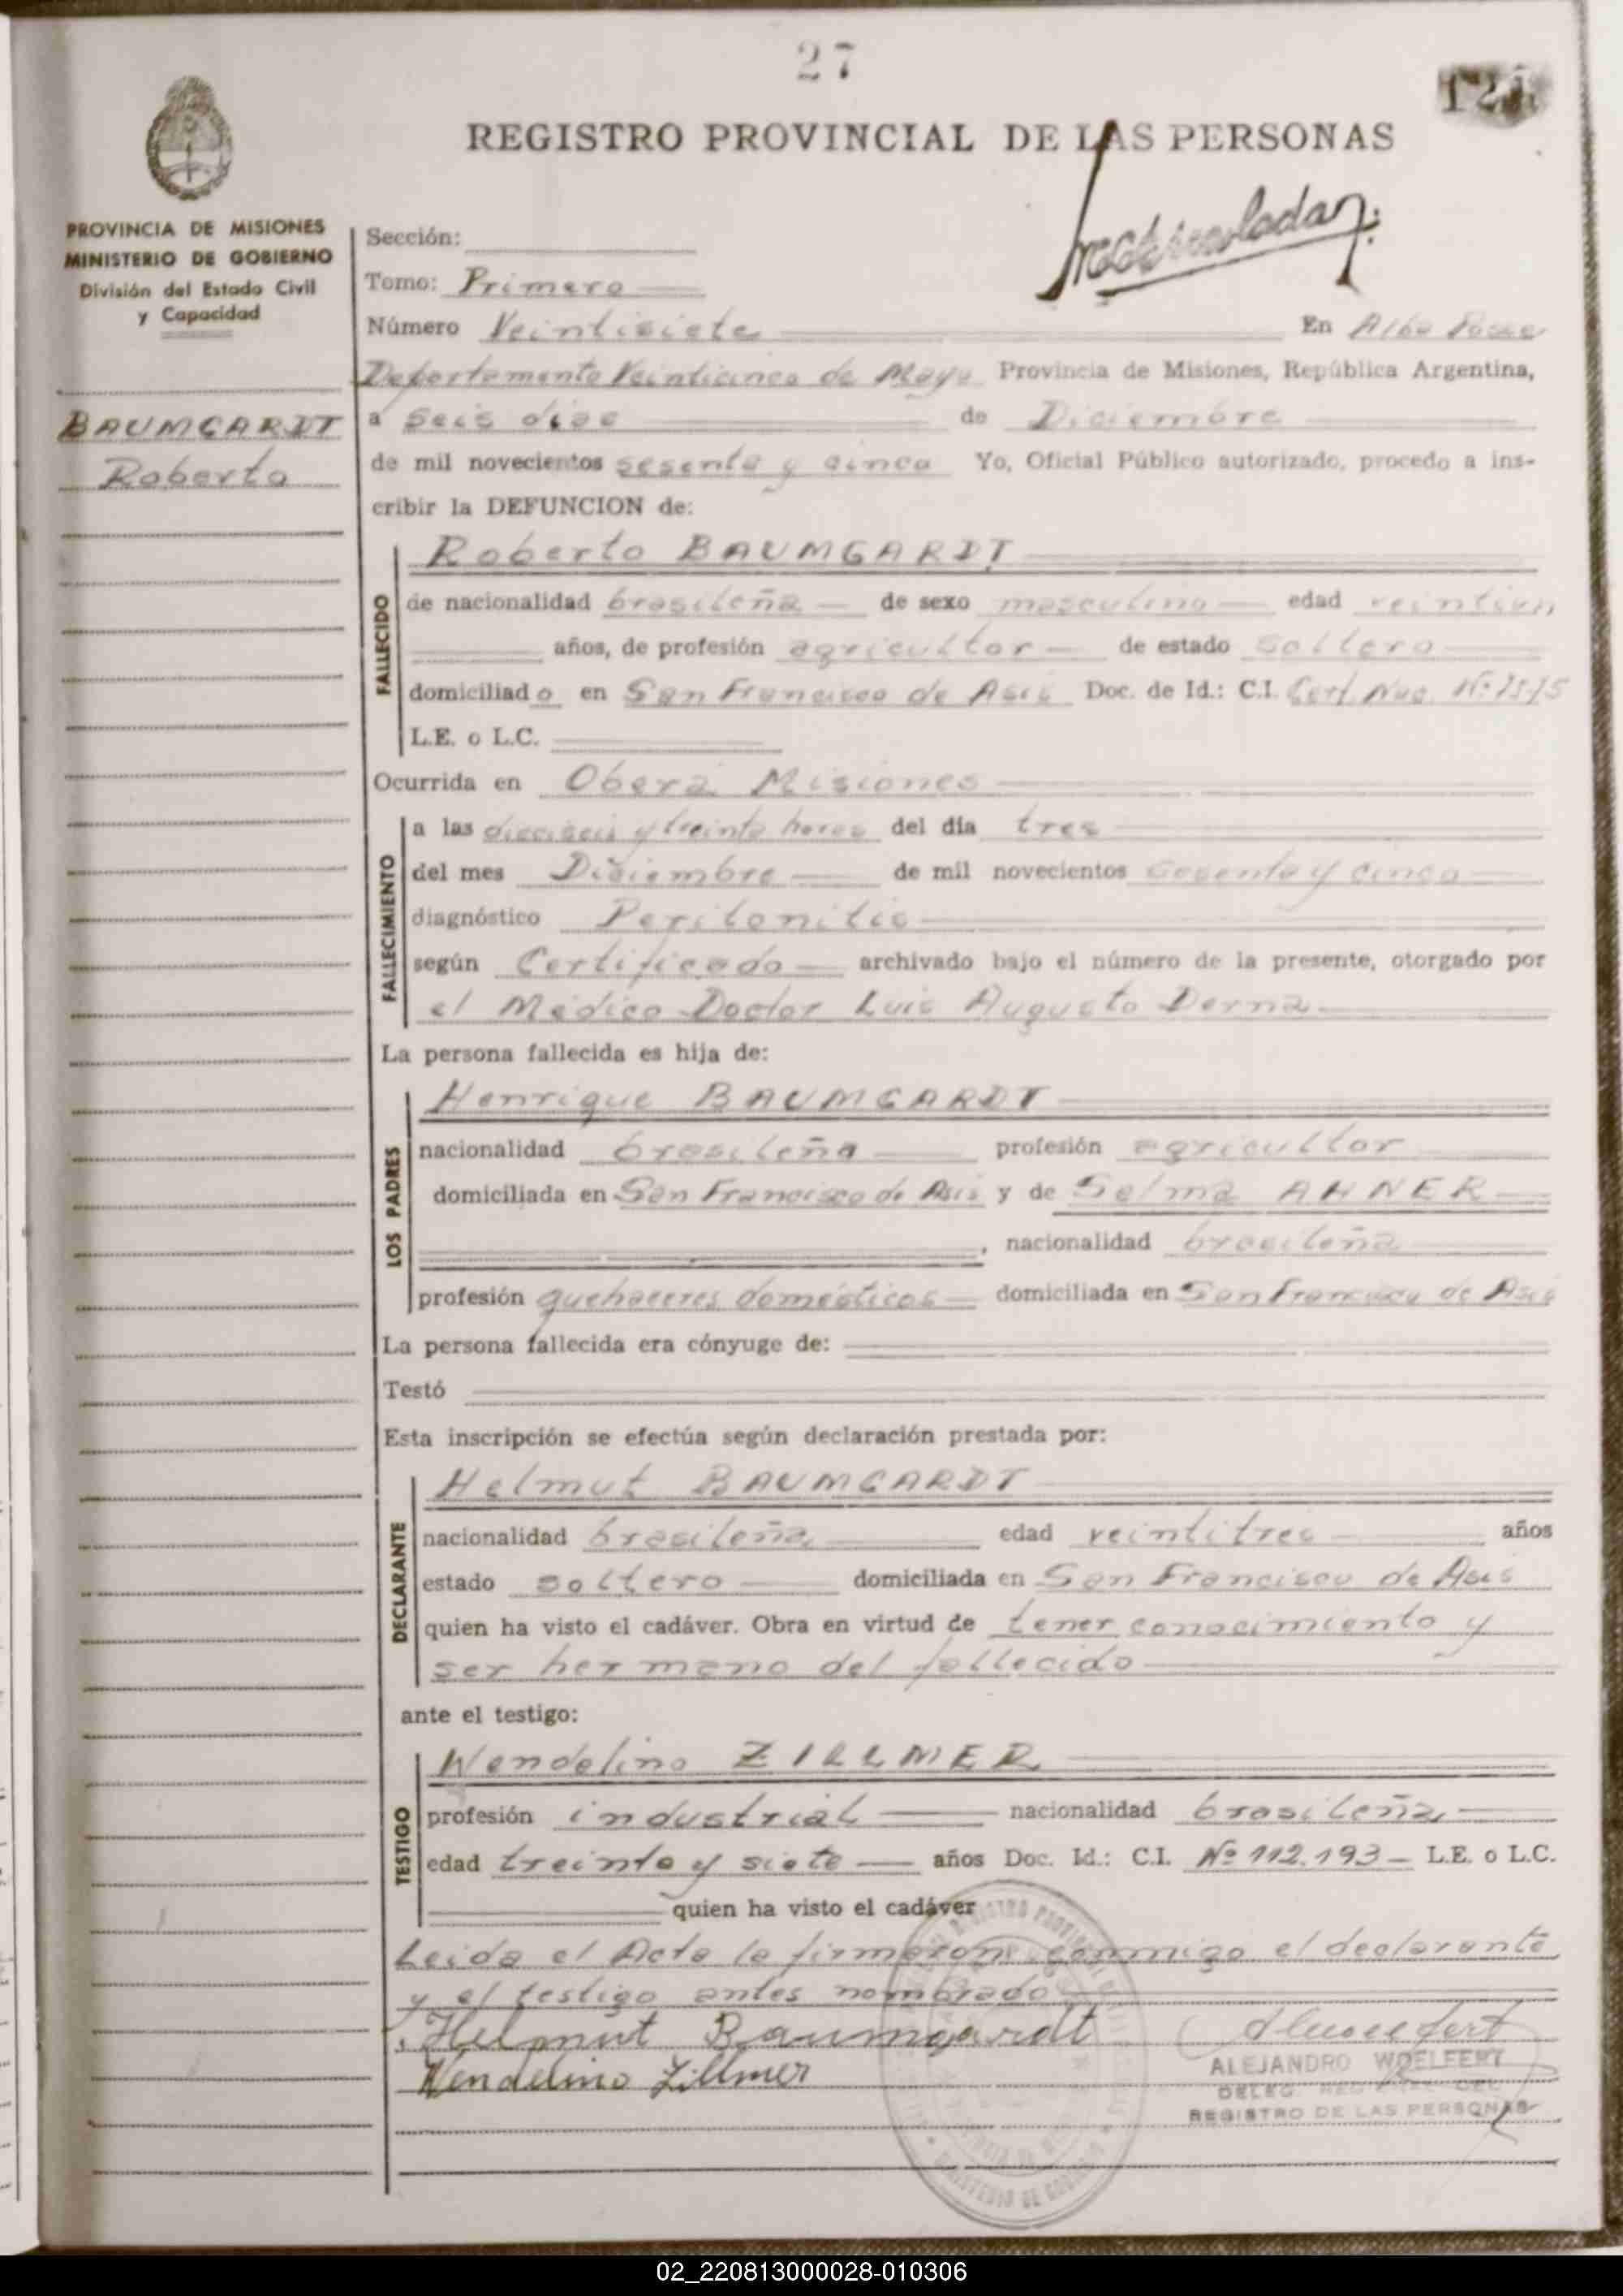 27
REGISTRO PROVINCIAL DE LAS PERSONAS
PROVINCIA DE MISIONES
MINISTERIO DE GOBIERNO
División del Estado Civil
y Capacidad
BAUMGARDT
Roberto
Sección:
Tomo: Primero
Número Veintisiete En Alba Posse
Departamento Veinticinco de Mayo Provincia de Misiones, República Argentina,
a seis dias de Diciembre
de mil novecientos sesenta y cinco Yo, Oficial Público autorizado, procedo a ins-
cribir la DEFUNCION de:
FALLECIDO
Roberto BAUMGARDT
de nacionalidad brasileña de sexo masculino edad veintiun
años, de profesión agricultor de estado soltero
domiciliado en San Francisco de Asis Doc. de Id.: C.I. Cert. Nac. Nº
L.E. o L.C.
Ocurrida en Oberá Misiones
FALLECIMIENTO
a las dieciseis y treinta horas del día tres
del mes Diciembre de mil novecientos sesenta y cinco
diagnóstico Peritonitis
según Certificado archivado bajo el número de la presente, otorgado por
el Médico Doctor Luis Augusto Derna
La persona fallecida es hija de:
LOS PADRES
Henrique BAUMGARDT
nacionalidad brasileña profesión agricultor
domiciliada en San Francisco de Asis y de Selma AHNER
, nacionalidad brasileña
profesión quehaceres domésticos domiciliada en San Francisco de Asis
La persona fallecida era cónyuge de:
Testó
Esta inscripción se efectúa según declaración prestada por:
DECLARANTE
Helmut BAUMGARDT
nacionalidad brasileña edad veintitres años
estado soltero domiciliada en San Francisco de Asis
quien ha visto el cadáver. Obra en virtud de tener conocimiento y
ser hermano del fallecido
ante el testigo:
TESTIGO
Wendelino ZILLMER
profesión industrial nacionalidad brasileña
edad treinta y siete años Doc. Id.: C.I. Nº 112.193 - L.E. o L.C.
quien ha visto el cadáver
Leida el Acta la firmaron conmigo el declarante
y el testigo antes nombrado
Helmut Baumgardt
Wendelino Zillmer
ALEJANDRO WOELFERT
DELEG. DEL
REGISTRO DE LAS PERSONAS
02_220813000028-010306